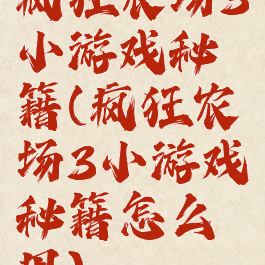 疯狂农场3
小游戏秘
籍(疯狂农
场3小游戏
秘籍怎么
用)